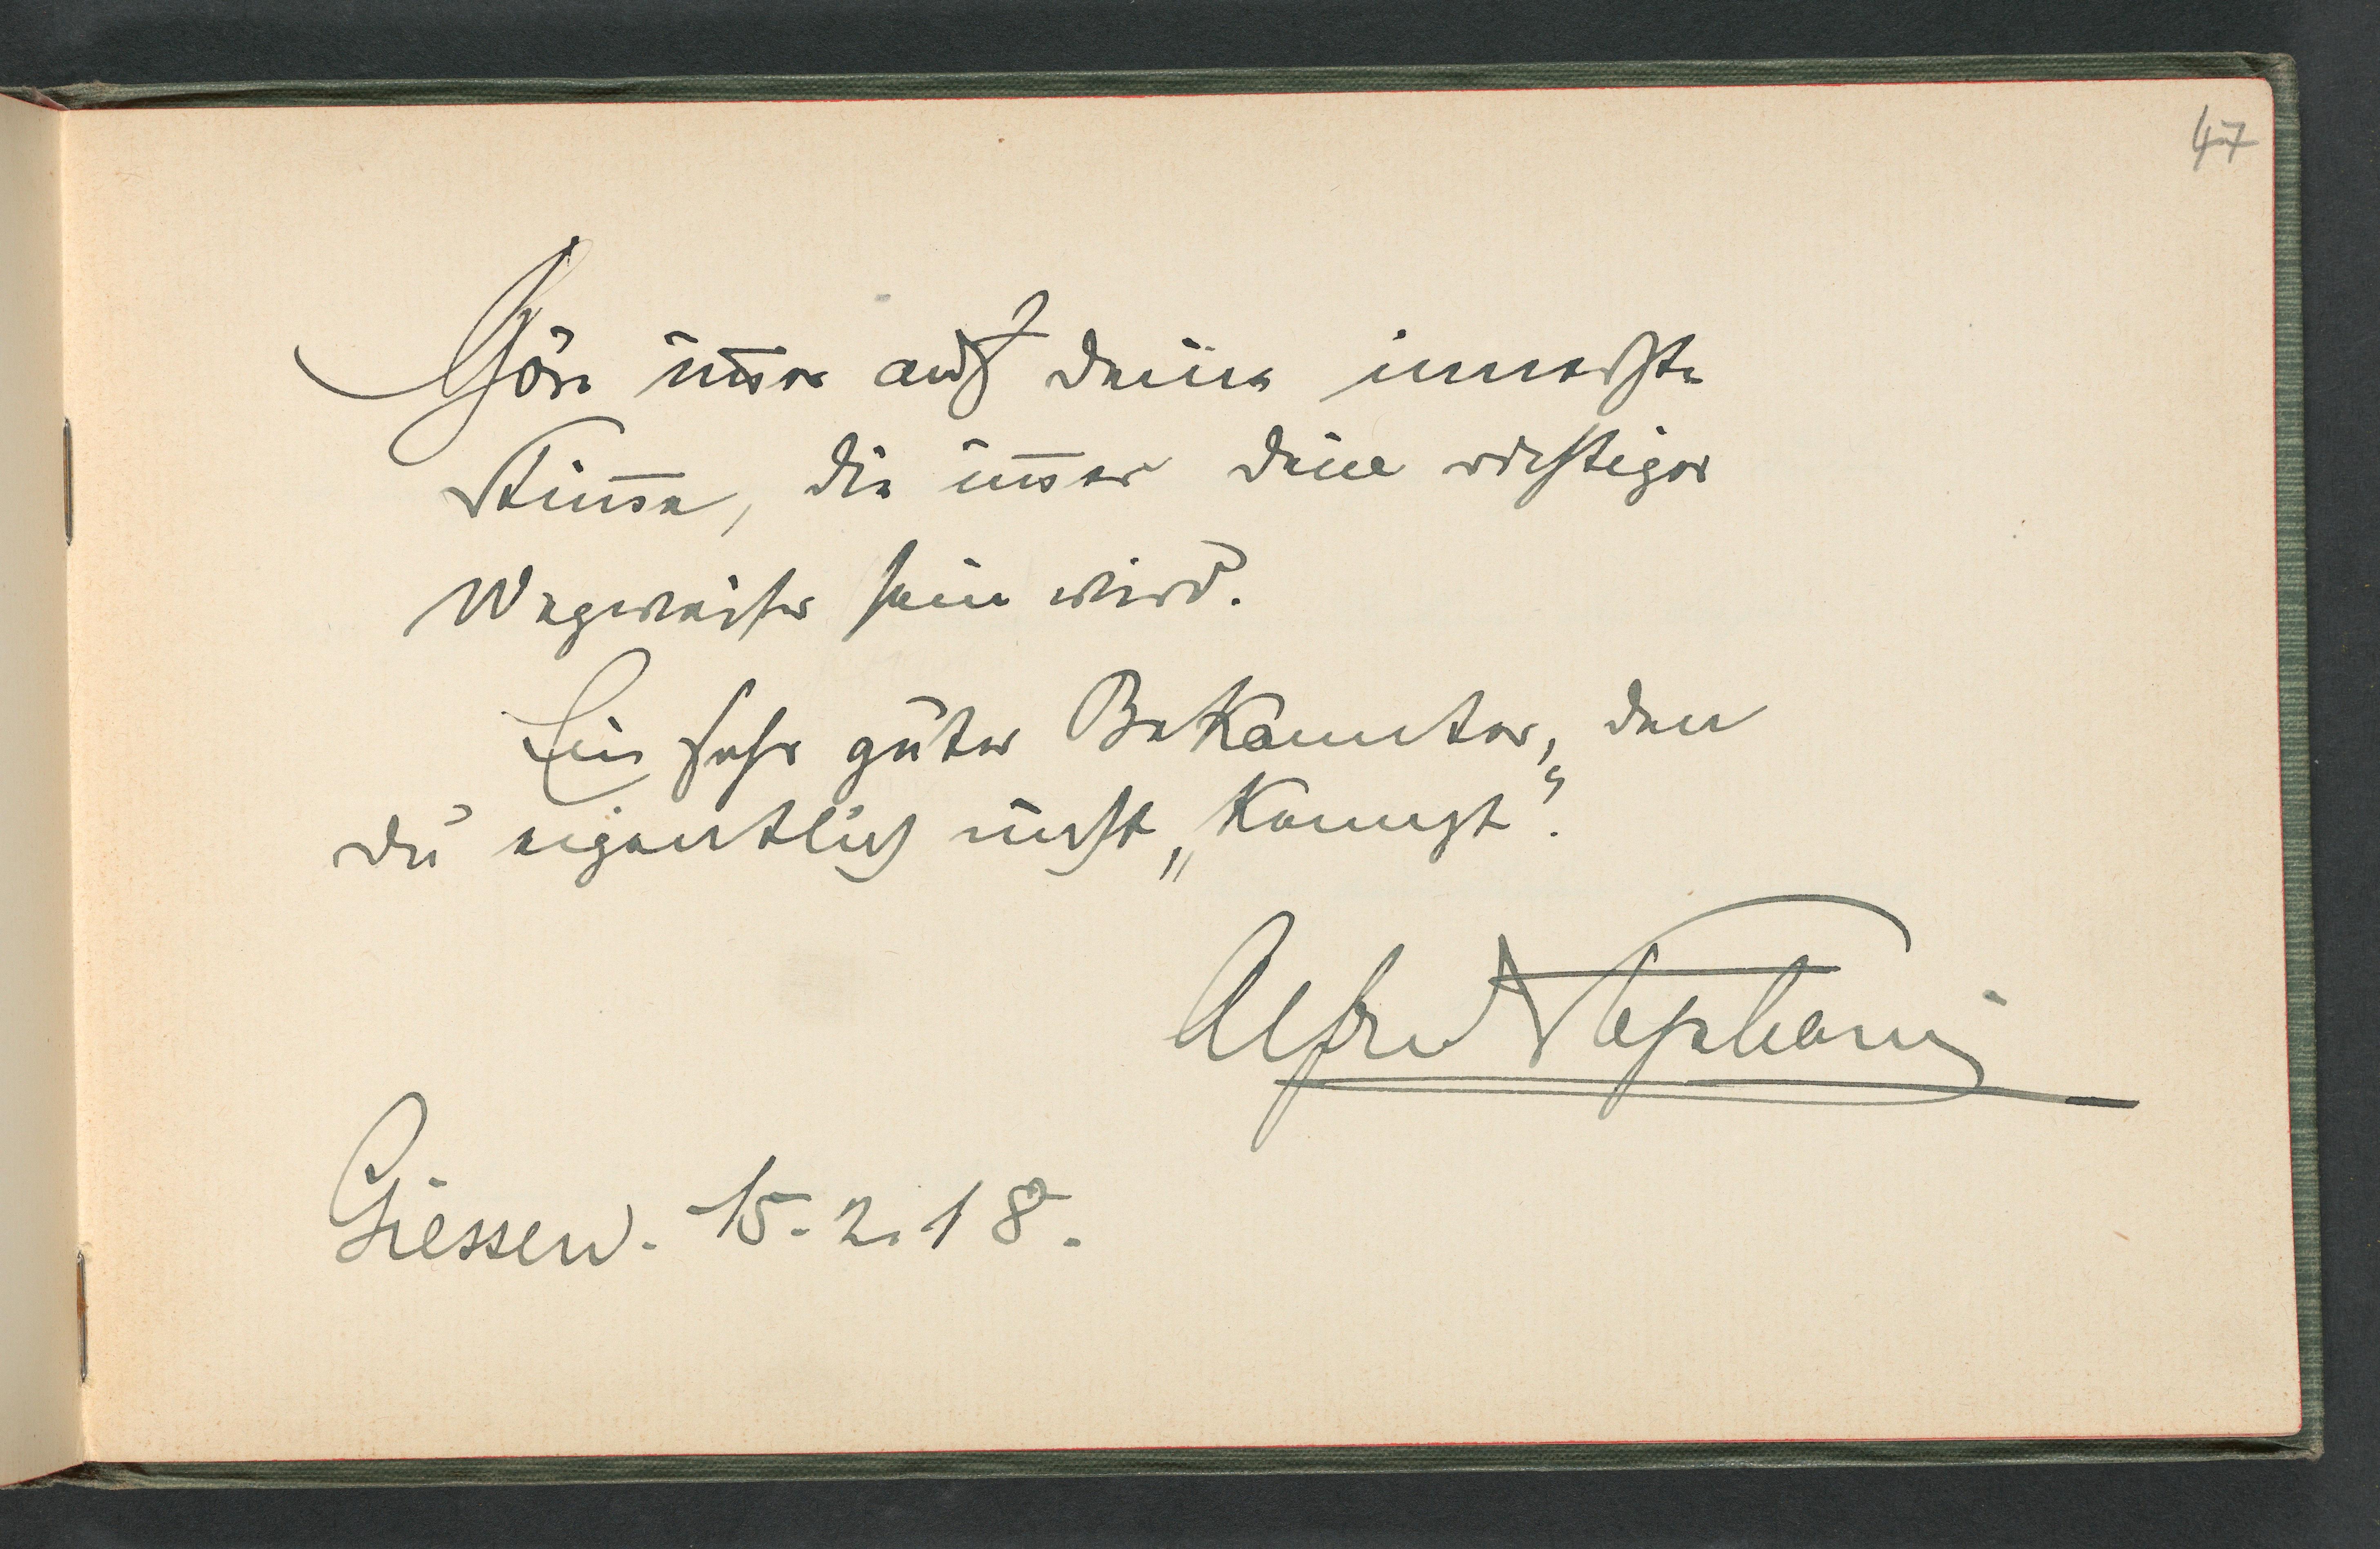 47
Höre im̅er auf deine innerste
Stim̅e, die im̅er dein richtiger
Wegweiser sein wird.
Ein sehr guter Bekannter, den
du eigentlich nicht „kennst“.
Alfred Stephani
Giessen. 15. 2. 18.